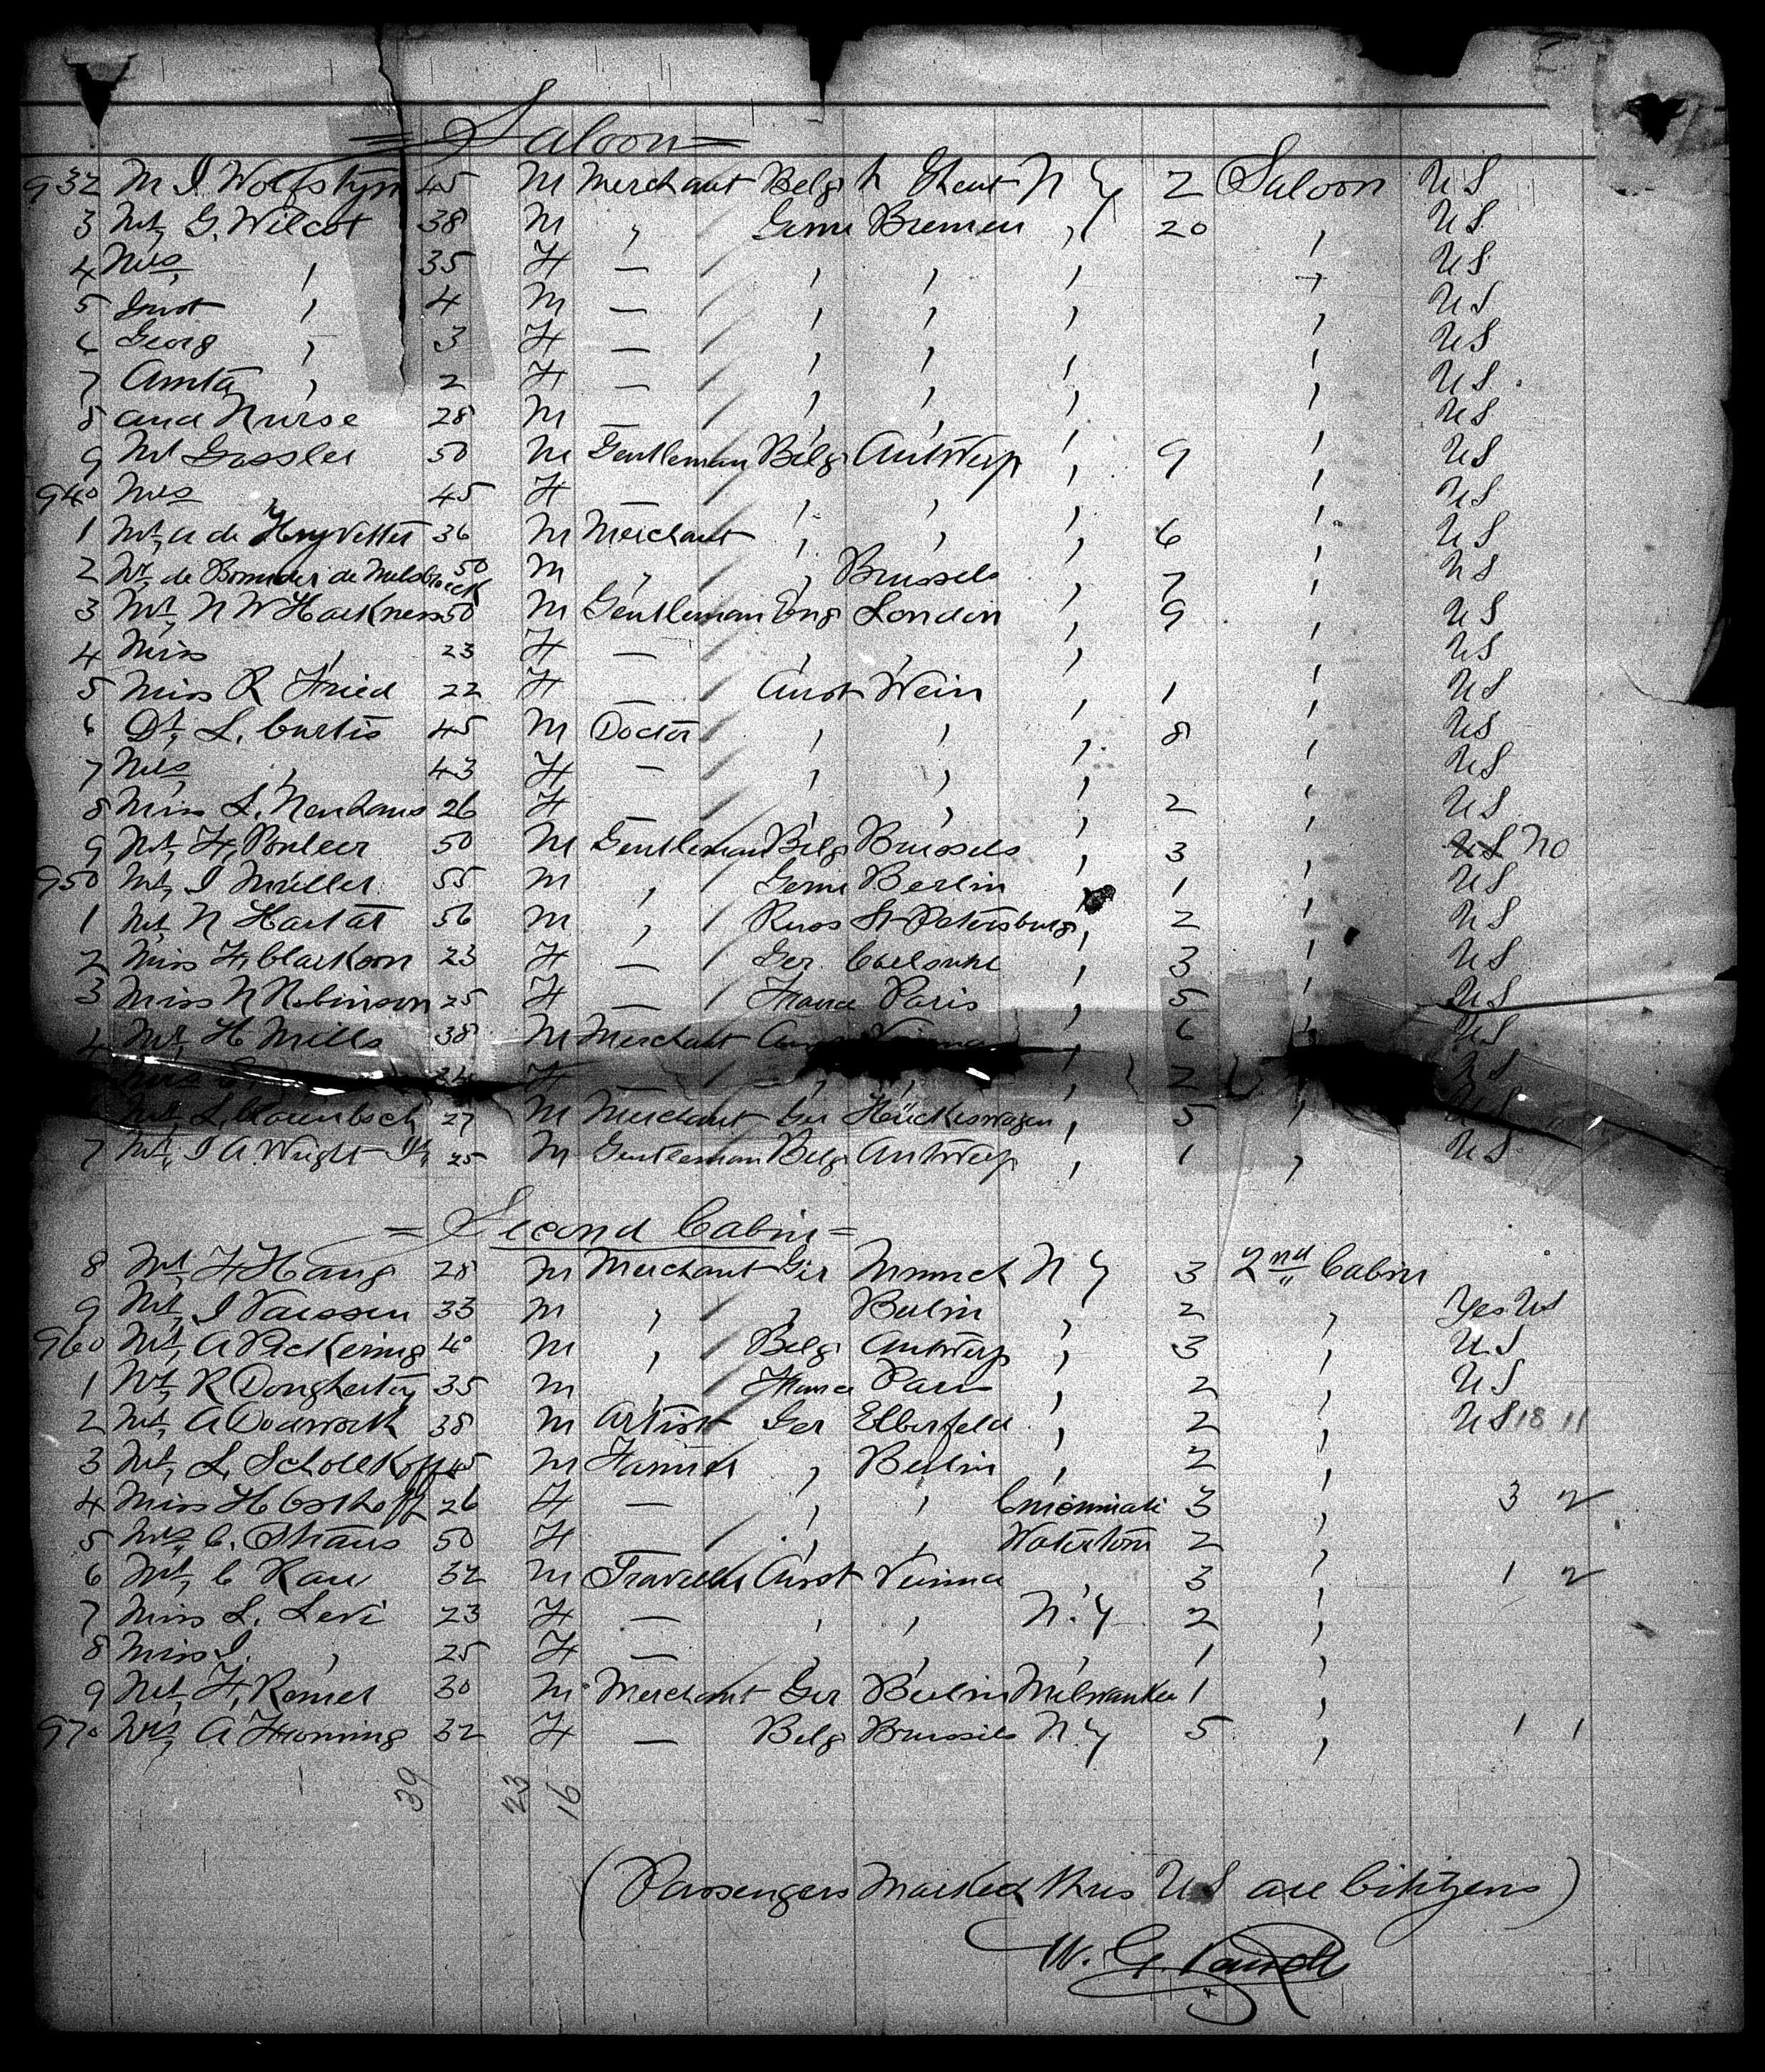 = Saloon =
932 M I. Wolfstyn 45 M Merchant Belg Ghent N Y 2 Saloon US
3 Mr, G. Wilcot 38 M , Germ Bremen , 20 , US
4 Mrs , 35 F — , , , , US
5 , 4 M — , , , , US
6 Georg , 3 F — , , , , US
7 Anita , 2 F — , , , , US
8 and Nurse 28 M — , , , , US
9 Mr Gossler 50 M Gentleman Belg Antwerp , 9 , US
940 Mrs 45 F — , , , , US
1 Mr, A de 36 M Merchant , , , 6 , US
2 Mr, de de 50 M , , Brussels , 7 , US
3 Mr, N W Harkness 50 M Gentleman Eng London , 9 , US
4 Miss , 23 F — , , , , US
5 Miss R Fried 22 F — Aust Wein , 1 , US
6 Dr, L. Curtis 45 M Doctor , , , 8 , US
7 Mrs , 43 F — , , , , US
8 Miss L. Neuhaus 26 F , , , 2 , US
9 Mr, F, 50 M Gentleman Belg Brussels , 3 , US no
950 Mr, I Müller 55 M , Germ Berlin , 1 , US
1 Mr, N 56 M , Russ St Petersburg , 2 , US
2 Miss F, Clarkson 23 F — Ger. Carlsruhe , 3 , US
3 Miss N Robinson 25 F — France Paris , 5 , US
4 Mr, H Mills 38 M Merchant , 6 , US
Mrs 24 F — , , , 2 , US
Mr, L. 27 M Merchant Ger Hückeswagen , 5 , US
7 Mr, I A. Wright Jr, 25 M Gentleman Belg Antwerp , 1 , US
= Second Cabin =
8 Mr, F Haug 28 M Merchant Ger Munich N Y 3 2nd Cabin
9 Mr, I Vaessen 33 M , , Berlin , 2 , Yes US
960 Mr, A Pickering 40 M , Belg Antwerp , 3 , US
1 Mr, R Dougherty 35 M , France Paris , 2 , US
2 Mr, A Dodworth 38 M Artist Ger Elberfeld , 2 , US 18 11
3 Mr, L, Schollkopf 45 M , Berlin , 2 ,
4 Miss H Osthoff 26 F — , , Cincinnati 3 , 3 2
5 Mrs, C. Straus 50 F — , , Watertown 2 ,
6 Mr, C Rau 32 M Traveller Aust Vienna , 3 , 1 2
7 Miss L. Levi 23 F — , , N. Y 2 ,
8 Miss I. , 25 F — , , , 1 ,
9 Mr, F, Romer 30 M Merchant Ger Berlin Milwaukee 1 ,
970 Mrs, A 32 F — Belg Brussels N. Y 5 , 1 1
39 23 16
(Passengers marked thus US are Citizens)
W. G.